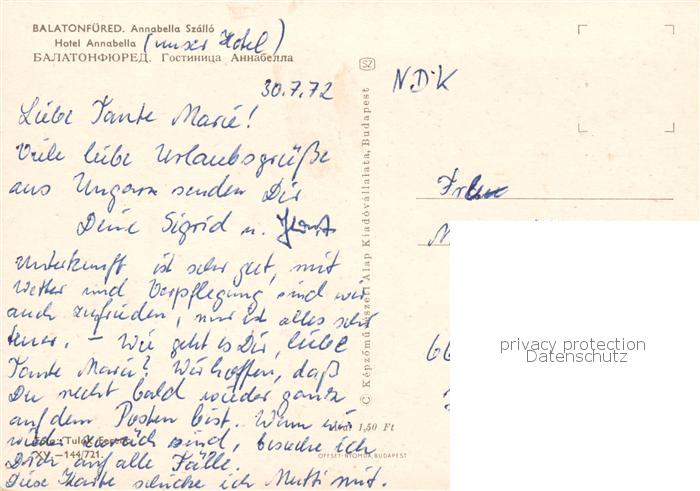 BALATONFÜRED. Annabella Szálló
Hotel Annabella (unser Hotel)
БАЛАТОНФЮРЕД. Гостиница Аннабелла
30.7.72
Liebe Tante Marie!
Viele liebe Urlaubsgrüße
aus Ungarn senden Dir
Deine Sigrid u. Horst
Unterkunft ist sehr gut, mit
Wetter und Verpflegung sind wir
auch zufrieden, nur ist alles sehr
teuer. – Wie geht es Dir, liebe
Tante Marie? Wir hoffen, daß
Du recht bald wieder ganz
auf dem Posten bist. Wenn wir
wieder zurück sind, besuche ich
Dich auf alle Fälle.
Diese Karte schicke ich Mutti mit.
Foto: Tulok Ferenc
XV.–144/721.
SZ
© Képzőművészeti Alap Kiadóvállalata, Budapest
NDK
Frau
66
Ára: 1,50 Ft
OFFSET-NYOMDA BUDAPEST
privacy protection
Datenschutz